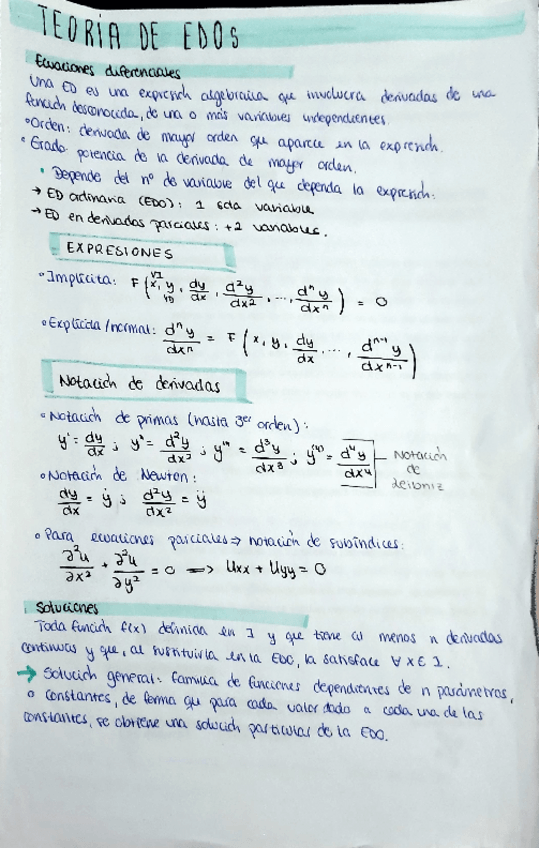 TEORÍA DE EDOs
Ecuaciones diferenciales
Una ED es una expresión algebraica que involucra derivadas de una
función desconocida, de una o más variables independientes.
• Orden: derivada de mayor orden que aparece en la expresión.
• Grado: potencia de la derivada de mayor orden.
• Depende del nº de variable del que dependa la expresión:
→ ED ordinaria (EDO): 1 sola variable
→ ED en derivadas parciales: +2 variables.
EXPRESIONES
• Implícita: F(x, y, dy/dx, d²y/dx², ..., dⁿy/dxⁿ) = 0
VI
VD
• Explícida/normal: dⁿy/dxⁿ = F(x, y, dy/dx, ..., dⁿ⁻¹y/dxⁿ⁻¹)
Notación de derivadas
• Notación de primas (hasta 3er orden):
y' = dy/dx ; y'' = d²y/dx² ; y''' = d³y/dx³ ; y⁽⁴⁾ = d⁴y/dx⁴
Notación
de
Leibniz
• Notación de Newton:
dy/dx = ẏ ; d²y/dx² = ÿ
• Para ecuaciones parciales ⇒ notación de subíndices:
∂²u/∂x² + ∂²u/∂y² = 0 ⟹ Uxx + Uyy = 0
Soluciones
Toda función f(x) definida en I y que tiene al menos n derivadas
continuas y que, al sustituirla en la EDO, la satisface ∀ x ∈ I.
→ Solución general: familia de funciones dependientes de n parámetros,
o constantes, de forma que para cada valor dado a cada una de las
constantes, se obtiene una solución particular de la EDO.